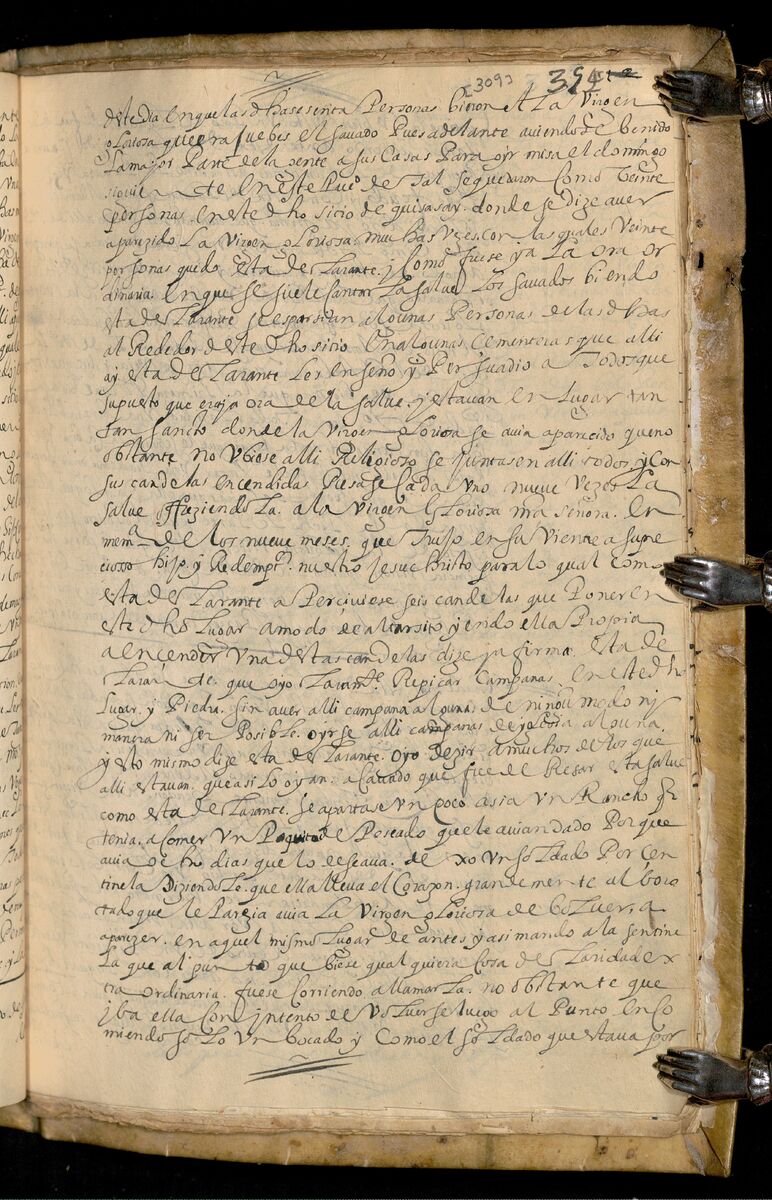 3093 394
deste dia en que las dhas sesenta Personas bieron A La Virgen
gLoriosa que era juebes el sauado Pues adelante auiendose benido
La major Parte de la gente a sus Casas Para oyr misa el domingo
siguien te En este Pueo de Tal se quedaron Como Veinte
personas en este dho sitio de guisasay. donde se dize auer
aparezido La Virgen gLoriosa. muchas Vezes. con las quales Veinte
personas quedo esta deCLarante. y Como fuese ya La ora or
dinaria. en que se suele Cantar La salue Los sauados biendo
esta deCLarante se esparsian algunas Personas de las dhas
al Rededor deste dho sitio En algunas sementeras que alli
ay esta deCLarante Los enseño y Persuadio a Todos que
supuesto que era ja ora de la salue. y estauan en Lugar tan
san sancto donde la Virgen gLoriosa se auia aparecido que no
obstante no Vbiese alli Religioso se juntasen alli todos y Con
sus candelas encendidas Resase Cada Vno nueue Vezes La
salue offreziendo La. a la Virgen GLoriosa nra señora. en
mema de los nueue meses. que Trujo en su Vientre a su pre
cioso hijo y Redemptor. nuestro Jesuchristo para lo qual Como
esta deCLarante aPerciuiese seis candelas que Poner en
este dho Lugar a modo de altarsito y endo ella Propia
a encender Vna destas candelas dize ja firma esta de
CLaran te. que oyo CLaramte. Repicar Campanas. en este dho
Lugar. y Piedra. sin auer alli campana algunas de ningun modo ni
manera ni ser Posible. oyrse alli campanas de yglesia alguna
y esto mismo dize esta deCLarante. oyo dezir. a muchos de los que
alli estauan. que asi lo oyan. acauado que fue de Resar esta salue
como esta deCLarante. se apartase Vn poco asia Vn Rancho qe
tenia. a Comer Vn Poquito de Pescado que le auian dado Porque
auia ocho dias que lo deseaua. dexo Vn soLdado Por Cen
tinela Diziendo Le. que ella lleua el Corazon. grandemente alboro
tado que le Parezia auia La Virgen gLoriosa de boLuer. a
aparezer. en aquel mismo Lugar de antes y asi mando a la sentine
La que al pun to que biese qual quiera Cosa de CLaridad ex
tra ordinaria. fuese Corriendo a llamar La. no obstante que
yba ella Con yntento de VoLuerse luego al Punto En Co
miendo soLo Vn bocado y Como el soLdado que estaua Por